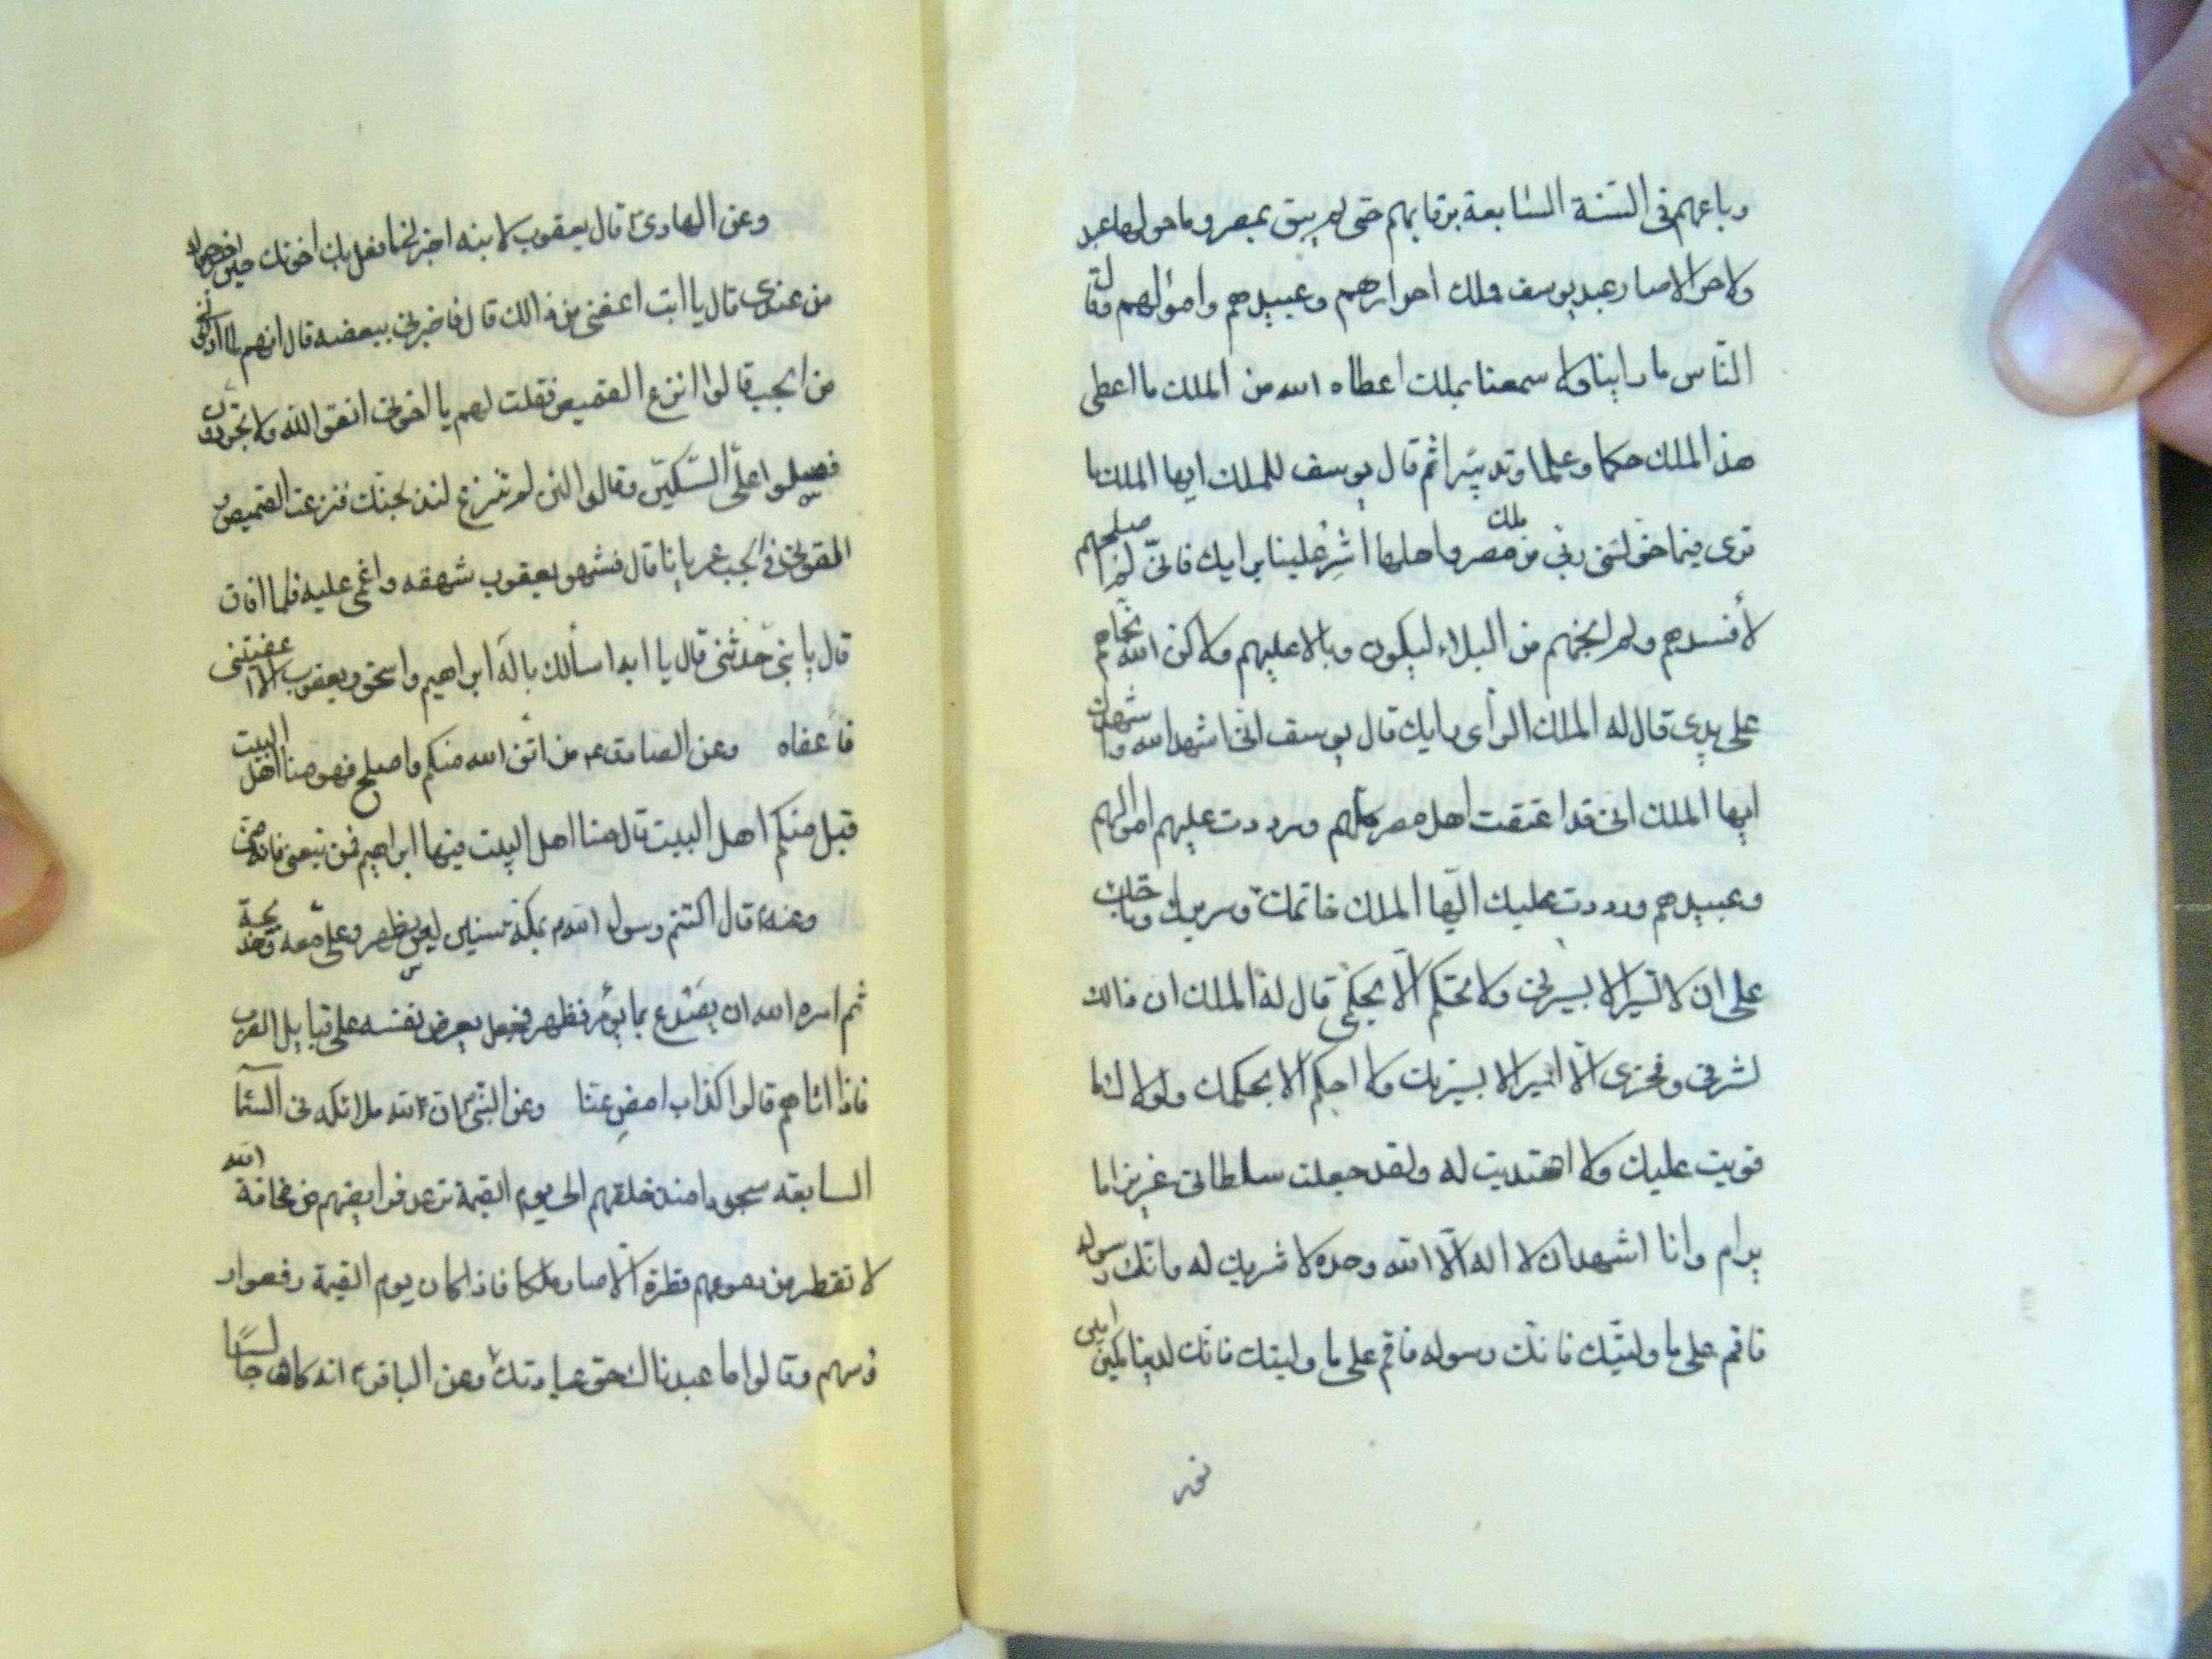 وباعهم فى السّنة السّابعة برقابهم حتى لم يبق بمصر وما حولها عبد
ولا حر الا صار عبد يوسف فملك احرارهم وعبيدهم واموالهم وقال
النّاس ما راينا ولا سمعنا بملك اعطاه الله من الملك ما اعطى
هذا الملك حكما وعلما وتدبيرا ثم قال يوسف للملك ايها الملك ما
ترى فيما خولنى ربى من ملك مصر واهلها اشر علينا برايك فانّى لم اصلحهم
لأفسدهم ولم انجهم من البلاء ليكون وبالا عليهم ولاكن الله نجاهم
على يدى قال له الملك الرأى رايك قال يوسف انى اشهد الله واشهدك
ايها الملك انى قد اعتقت اهل مصر كلهم ورددت عليهم اموالهم
وعبيدهم ورددت عليك ايّها الملك خاتمك وسريرك وتاجك
على ان لا تسير الا بسيرتى ولا تحكم الّا بحكمى قال له الملك ان ذالك
لشرفى وفخرى الّا اسير الا بسيرتك ولا احكم الا بحكمك ولولاك ما
قويت عليك ولا اهتديت له ولقد جعلت سلطانى عزيزا ما
يرام وانا اشهد ان لا اله الّا الله وحده لا شريك له وانّك رسوله
فاقم على ما وليّتك فانّك رسوله فاقم على ما وليتك فانّك لدينا مكين امين
وعن
وعن الهادى ع قال يعقوب لابنه اخبرنى ما فعل بك اخوتك حين اخرجوك
من عندى قال يا ابت اعفنى من ذالك قال فاخبرنى ببعضه قال انهم لما ادنونى
من الجب قالوا انزع القميص فقلت لهم يا اخوتى اتقوا الله ولا تجردونى
فسلوا علىّ السّكين وقالوا لئن لم تنزع لنذبحنّك فنزعت القميص و
القونى فى الجب عريانا قال فشهق يعقوب شهقه واغمى عليه فلما افاق
قال يا بنى حدثنى قال يا ابه اسألك باله ابراهيم واسحق ويعقوب الا اعفيتنى
فأعفاه وعن الصادق ع من اتقى الله منكم واصلح فهو منا اهل البيت
قيل منكم اهل البيت قال منا اهل البيت فيها ابراهيم فمن تبعنى فانه منى
وعنه ع قال اكتتم رسول الله ص بمكة سنين ليس يظهر وعلى ع معه وخديجة
ثم امره الله ان يصدع بما يؤمر فظهر فجعل يعرض نفسه على قبايل العرب
فاذا اتاهم قالوا كذاب امض عنا وعن النبى ص ان لله ملائكه فى السّمآ
السابعه سجودا منذ خلقهم الى يوم القيمة ترعد فرايصهم من مخافة الله
لا تقطر من دموعهم قطرة الّا صار ملكا فاذا كان يوم القيمة رفعوا ر
ؤسهم وقالوا ما عبدناك حق عبادتك وعن الباقر ع انه كان جالسا